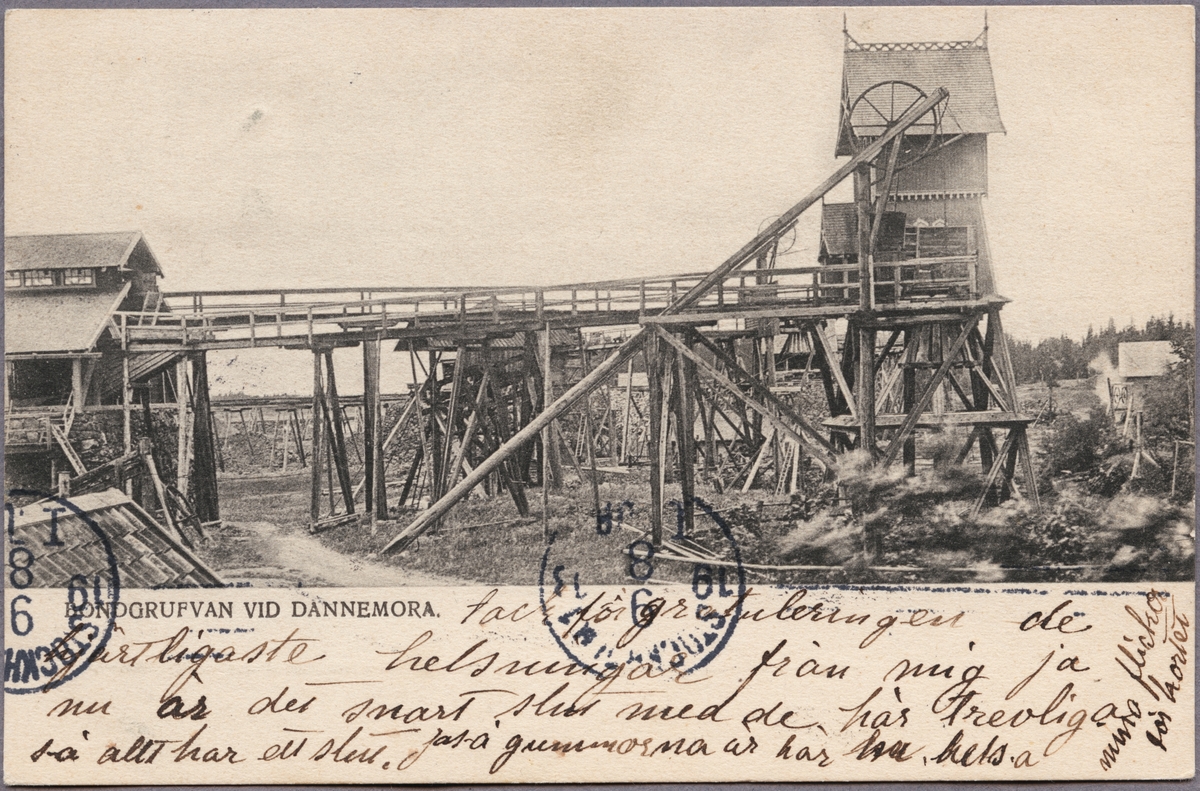 BONDGRUFVAN VID DANNEMORA.
tack för gratuleringen de
hjärtligaste helsningar från mig ja
nu är det snart slut med de här trevliga
så allt har ett slut. gummorna är här hels.a
mina flickor
för kortet
19 8 1
9
STOCKH
19 8 1
9
STOCKH